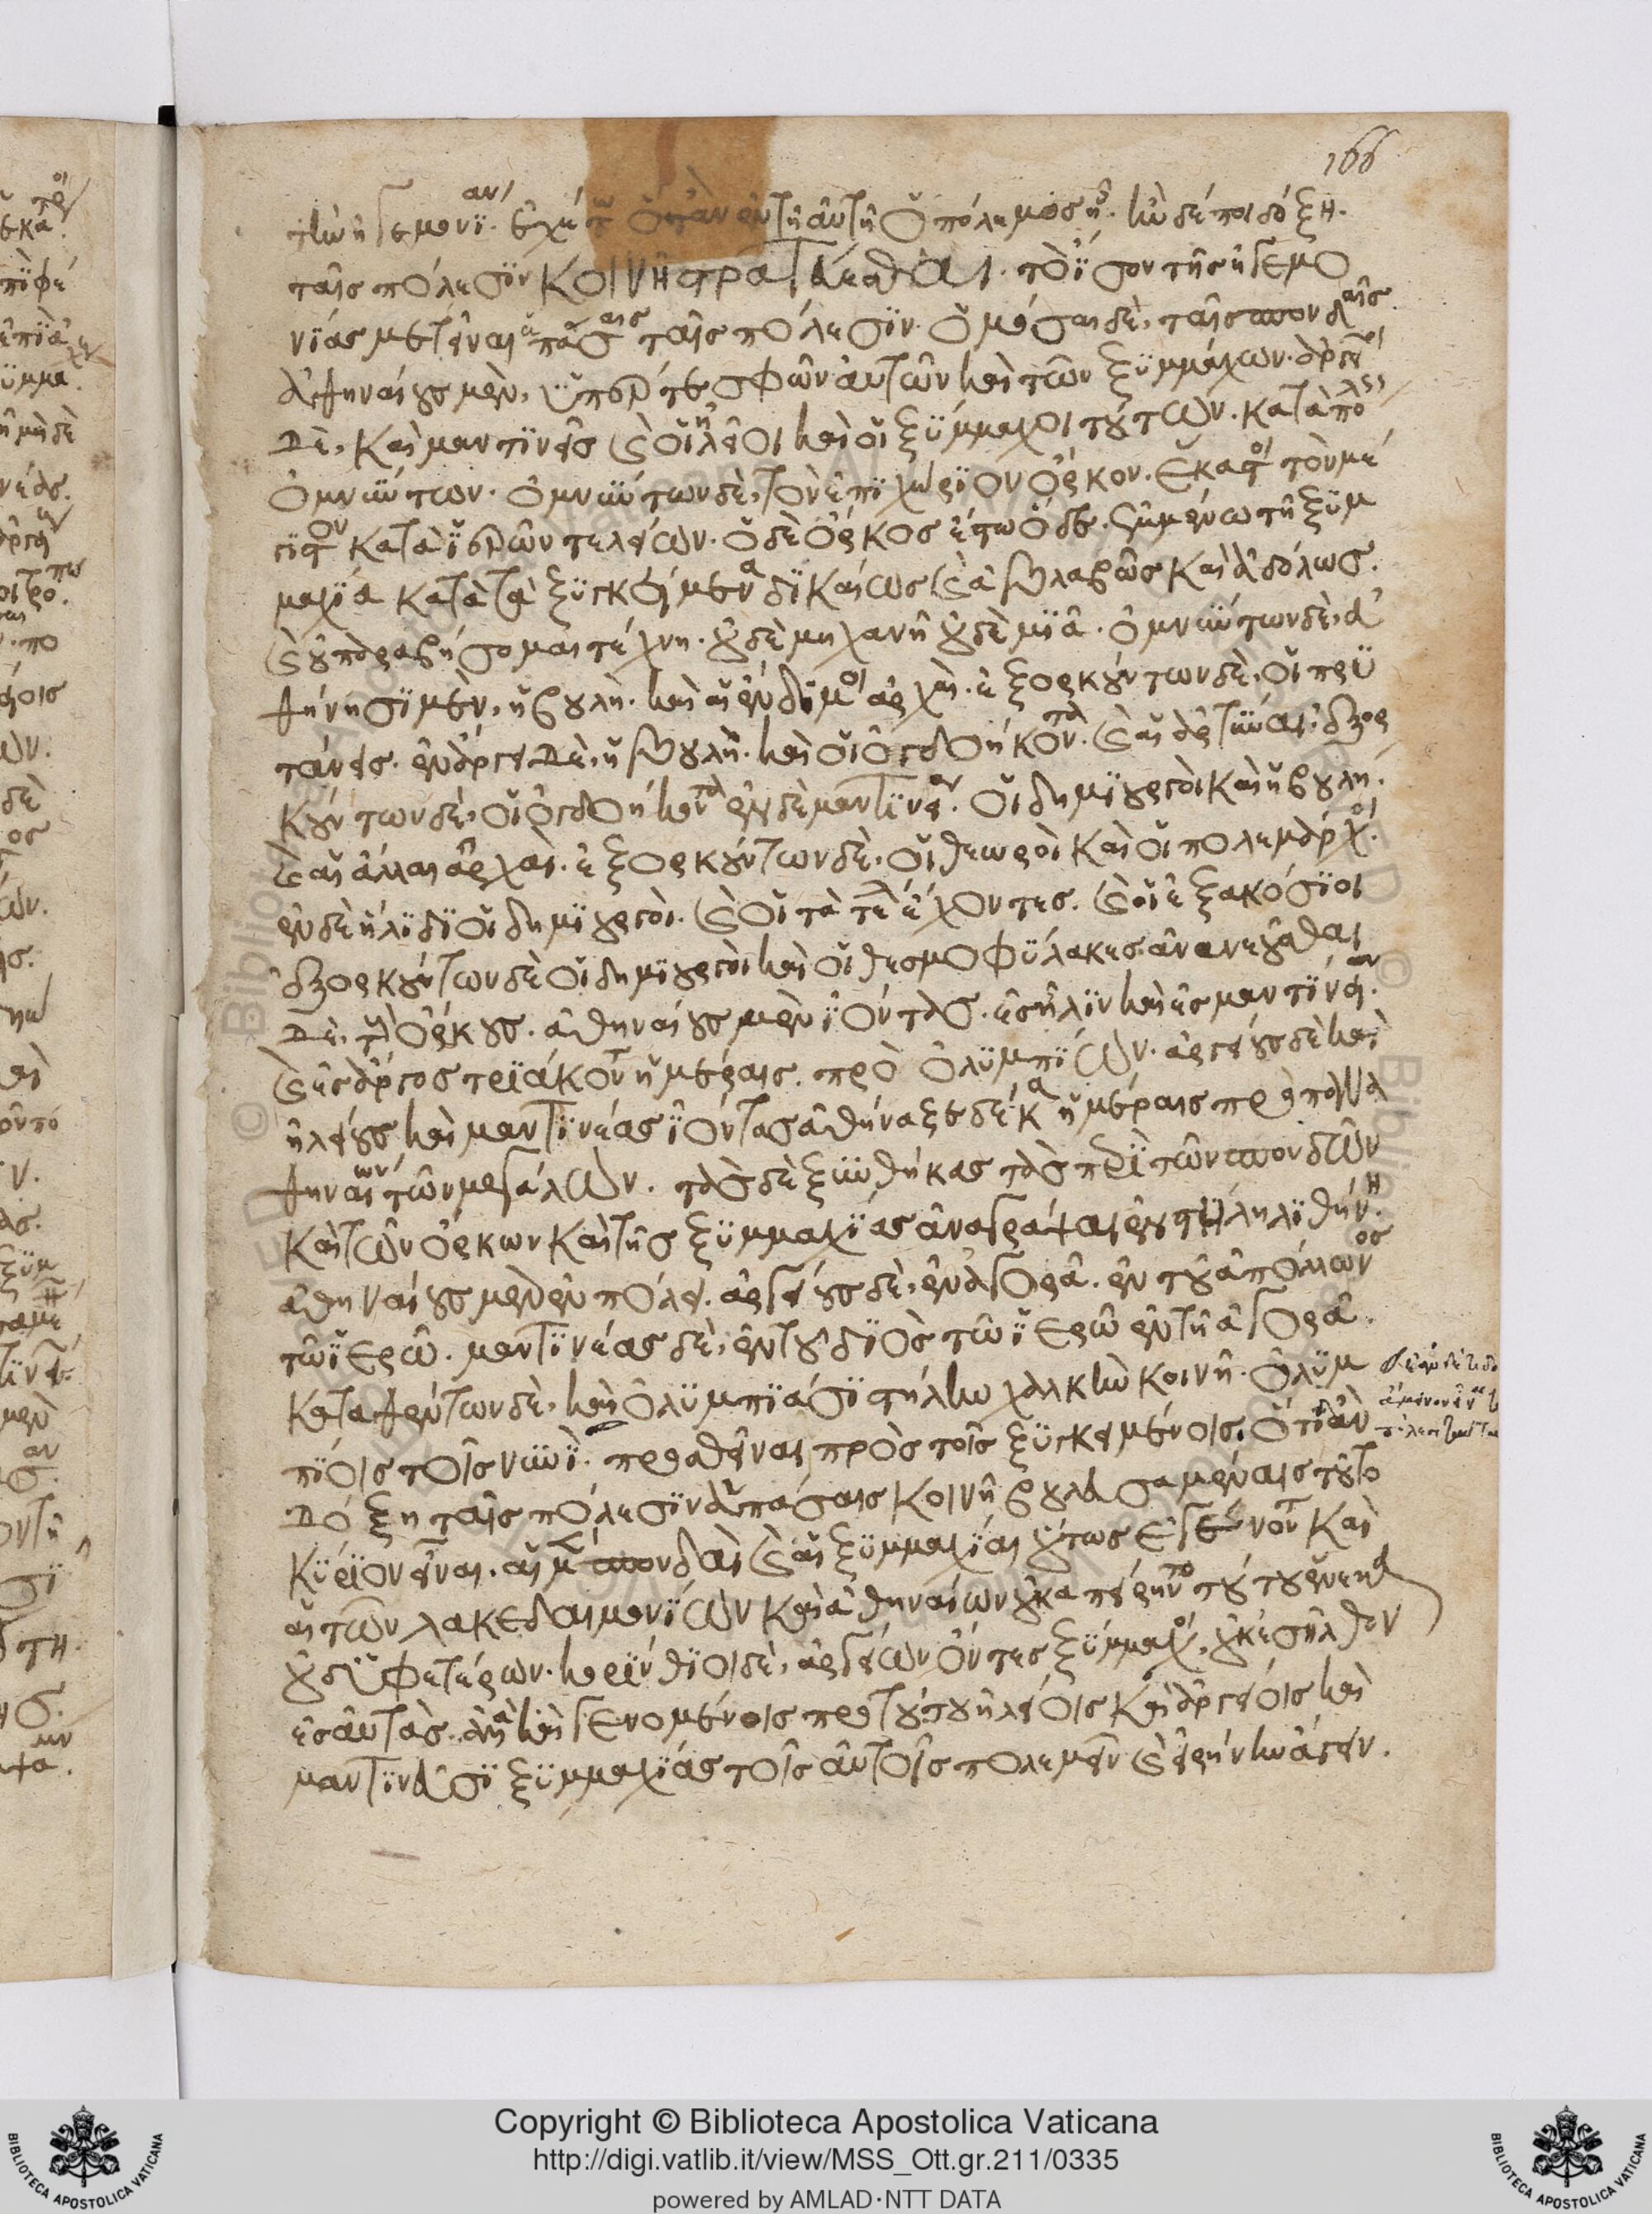 166
τὴν ἡγεμονίαν ἐχέτω ὅταν ἐν τῇ αὐτῇ ὁ πόλεμος ᾖ. ἢν δέ ποι δόξῃ
ταῖς πόλεσιν κοινῇ στρατεύεσθαι. τὸ ἴσον τῆς ἡγεμο
νίας μετεῖναι ἁπάσαις ταῖς πόλεσιν. ὀμόσαι δὲ, ταῖς σπονδαῖς
ἀθηναίους μὲν, ὑπέρ τε σφῶν αὐτῶν καὶ τῶν ξυμμάχων. ἀργεῖοι
δὲ, καὶ μαντινεῖς καὶ οἱ ἠλεῖοι καὶ οἱ ξύμμαχοι τούτων. κατὰ πόλεις
ὀμνύντων. ὀμνύντων δὲ, τὸν ἐπιχώριον ὅρκον. ἕκαστοι τὸν μέ
γιστον κατὰ ἱερῶν τελείων. ὁ δὲ ὅρκος ἔστω ὅδε. ἐμμένω τῇ ξυμ
μαχία κατὰ τὰ ξυγκείμενα δικαίως καὶ ἀβλαβῶς καὶ ἀδόλως.
καὶ οὐ παραβήσομαι τέχνη. οὐδὲ μηχανῇ οὐδὲ μιᾷ. ὀμνύντων δὲ, ἀ
θήνησι μὲν, ἡ βουλὴ. καὶ αἱ ἔνδημοι ἀρχαὶ. ἐξορκούντων δὲ, οἱ πρυ
τάνεις. ἐν ἄργει δὲ, ἡ βουλὴ. καὶ οἱ ὀγδοήκοντα. καὶ αἱ ἀρτῦναι. ἐξορ
κούντων δὲ, οἱ ὀγδοήκοντα ἐν δὲ μαντινεία. οἱ δημιουργοὶ καὶ ἡ βουλή.
καὶ αἱ ἄλλαι ἀρχαὶ. ἐξορκούντων δὲ, οἱ θεωροὶ καὶ οἱ πολέμαρχοι.
ἐν δὲ ἤλιδι οἱ δημιουργοὶ. καὶ οἱ τὰ τέλη ἔχοντες. καὶ οἱ ἑξακόσιοι
ἐξορκούντων δὲ οἱ δημιουργοὶ καὶ οἱ θεσμοφύλακες. ἀνανεοῦσθαι
δὲ, τοὺς ὅρκους. ἀθηναίους μὲν ἰόντας. ἐς ἦλιν καὶ ἐς μαντίνειαν.
καὶ ἐς ἄργος τριάκοντα ἡμέραις. πρὸ ὀλυμπίων. ἀργείους δὲ καὶ
ἠλείους καὶ μαντινέας ἰόντας ἀθήναζε δέκα ἡμέραις πρὸ παναθ
ηναίων τῶν μεγάλων. τὰς δὲ ξυνθήκας τὰς περὶ τῶν σπονδῶν
καὶ τῶν ὅρκων καὶ τῆς ξυμμαχίας ἀναγράψαι ἐν στήλῃ λιθίνη.
ἀθηναίους μὲν ἐν πόλει. ἀργείους δὲ, ἐν ἀγορᾷ. ἐν τοῦ ἀπόλλωνος
τῷ ἱερῷ. μαντινέας δὲ, ἐν τοῦ διὸς τῷ ἱερῷ ἐν τῇ ἀγορᾷ.
καταθέντων δὲ, καὶ ὀλυμπιάσι στήλην χαλκὴν κοινῇ. ὀλυμ
πίοις τοῖς νυνὶ. προσθεῖναι πρὸς τοῖς ξυγκειμένοις. ὅ τι δ' ἂν
δόξη ταῖς πόλεσιν ἁπάσαις κοινῇ βουλευομέναις τοῦτο
κύριον εἶναι. αἱ μὲν σπονδαὶ καὶ αἱ ξυμμαχίαι οὕτως ἐγένοντο καὶ
αἱ τῶν λακεδαιμονίων καὶ ἀθηναίων οὐκ ἀπείρηντο τούτου ἕνεκα
οὐδ' ὑφετέρων. κορίνθιοι δὲ, ἀργείων ὄντες ξύμμαχοι, οὐκ ἐσῆλθον
ἐς αὐτὰς. ἀλλὰ καὶ γενομένοις πρὸ τούτου ἠλείοις καὶ ἀργείοις καὶ
μαντινεῦσι ξυμμαχίας τοῖς αὐτοῖς πολεμεῖν καὶ εἰρήνην ἄγειν.
Copyright © Biblioteca Apostolica Vaticana
http://digi.vatlib.it/view/MSS_Ott.gr.211/0335
powered by AMLAD·NTT DATA
BIBLIOTECA APOSTOLICA VATICANA
BIBLIOTECA APOSTOLICA VATICANA